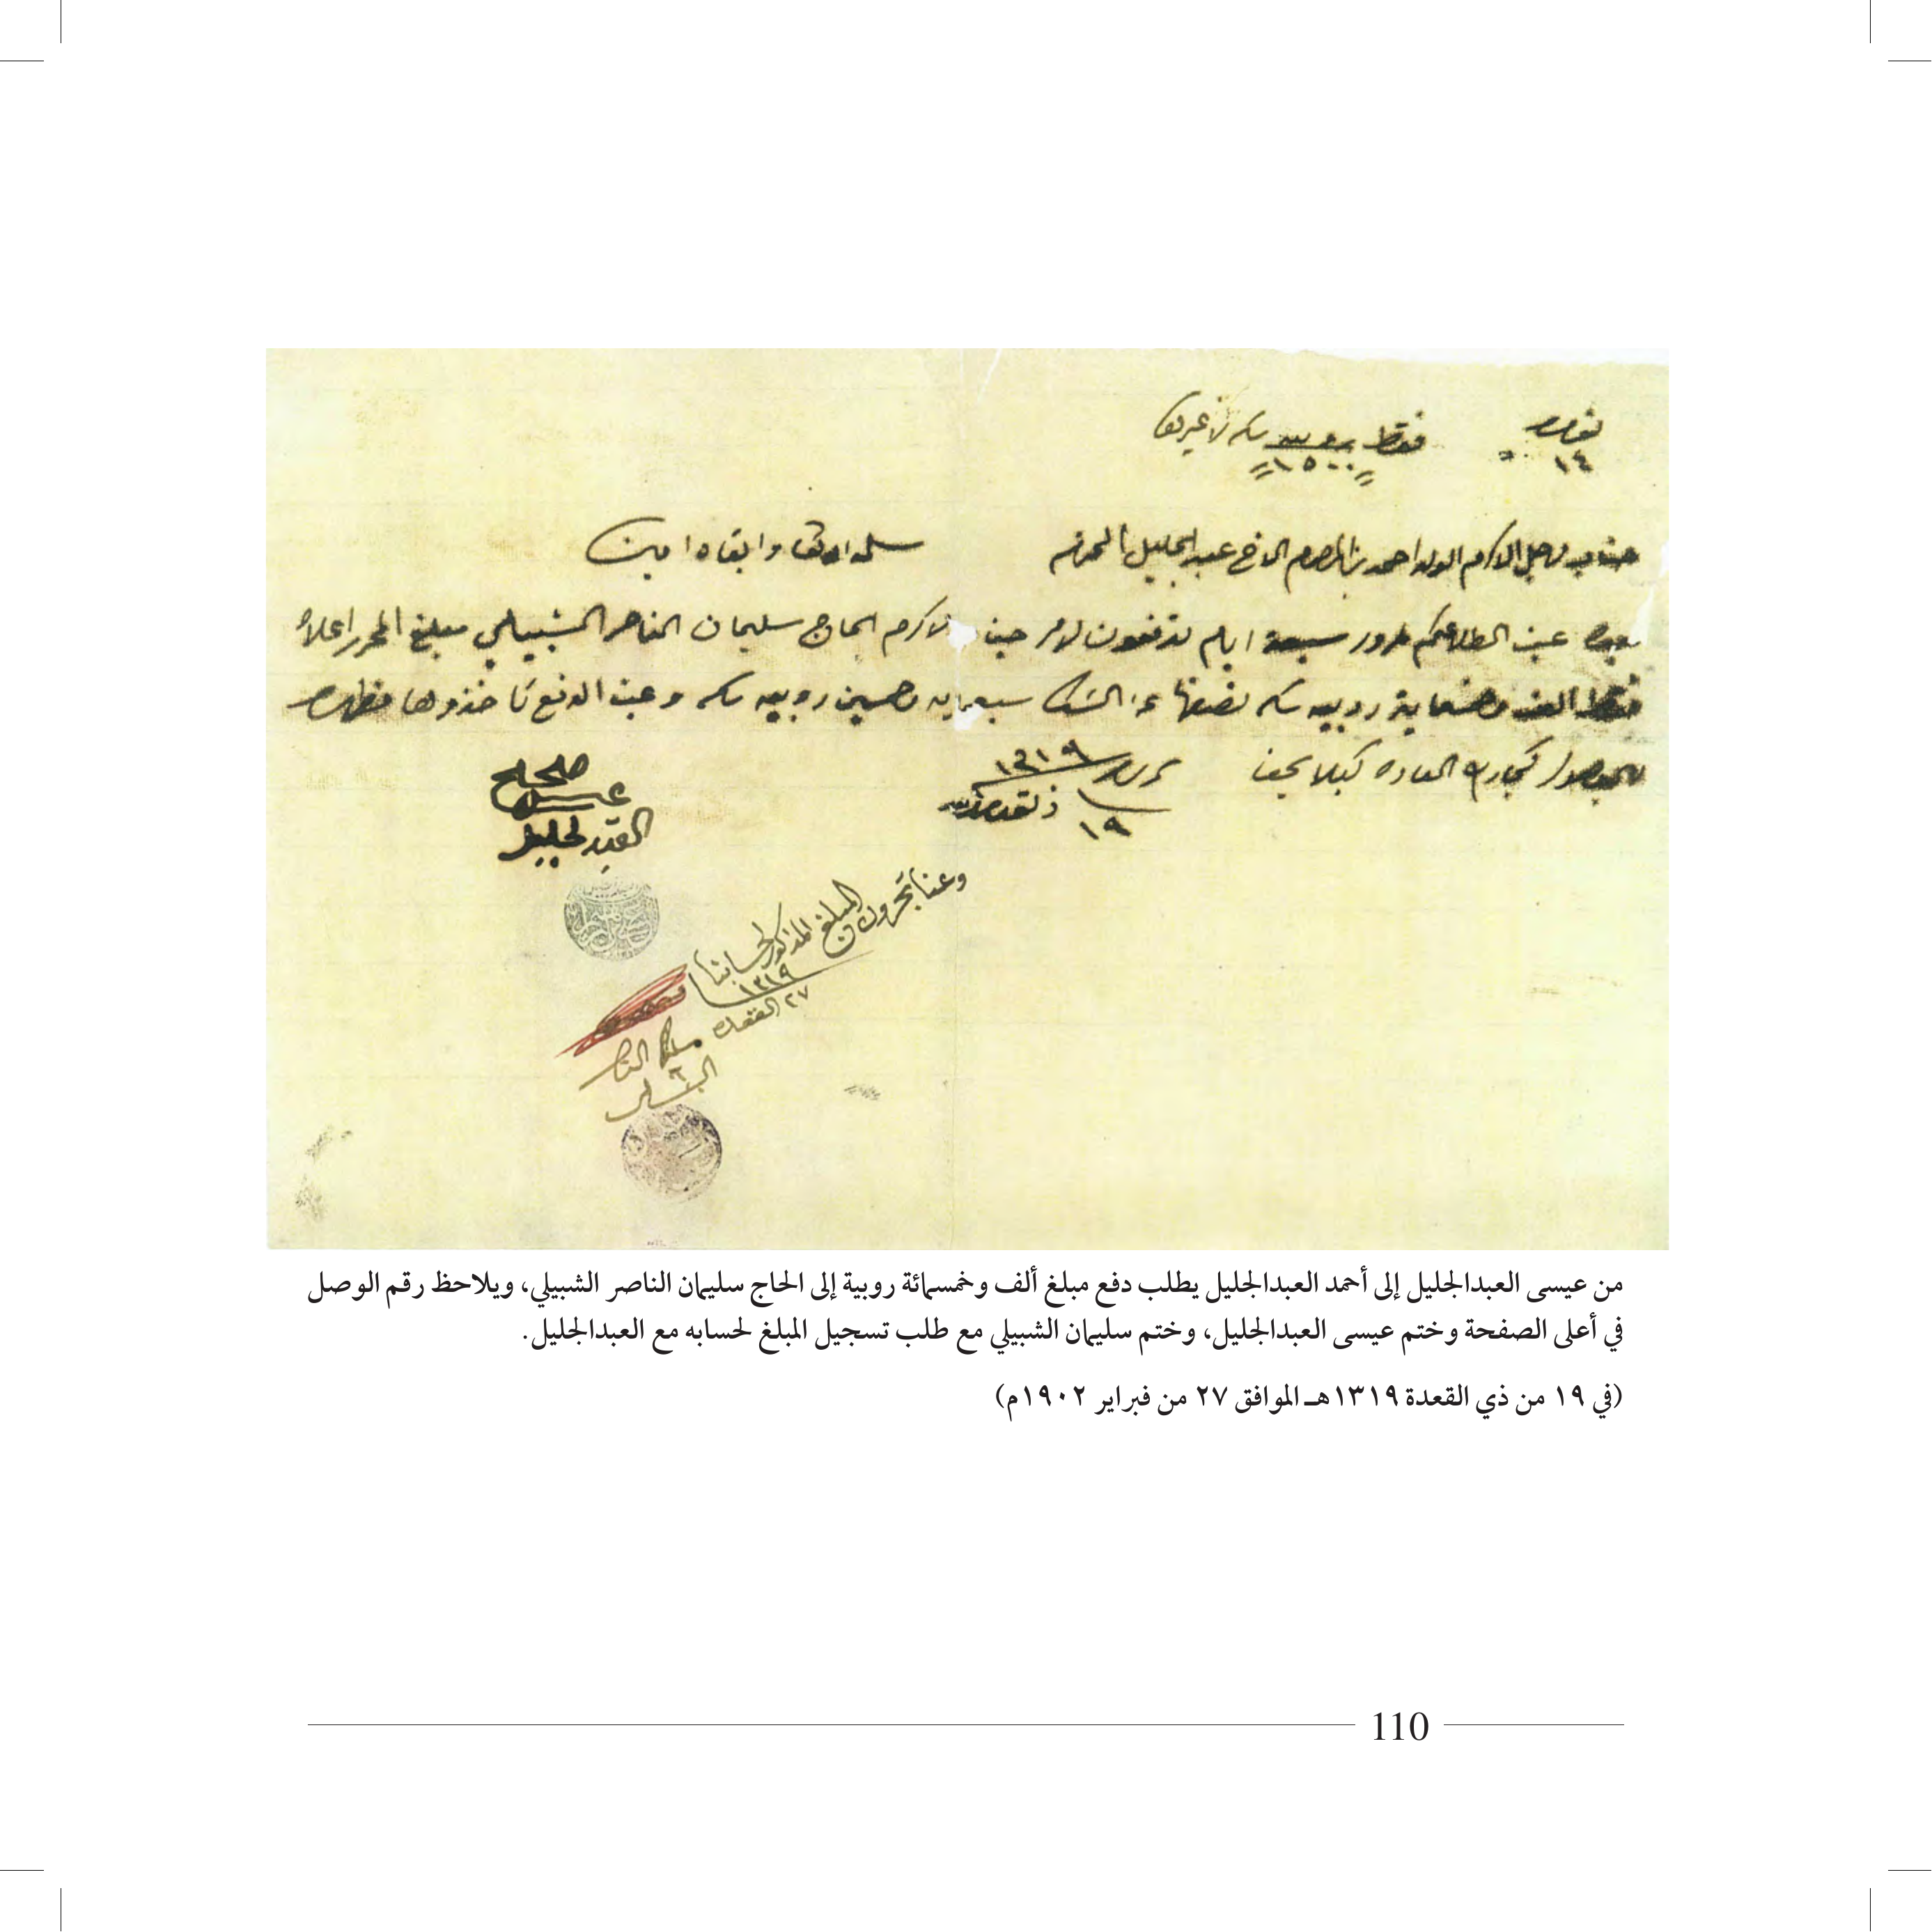 نمره ١٤
فقط روبيه ١٥٠٠ سكه لا غيرها
جناب الاجل الاكرم الولد احمد بن المرحوم الاخ عبد الجليل المحترم
سلمه الله تعالى وابقاه امين
بعده عند اطلاعكم مرور سبعة ايام تدفعون لامر جناب الاكرم الحاج سليمان الناصر الشبيلي مبلغ المحرر اعلاه
فقط الف وخمسماية روبيه سكه نصفها عن الشك سبعمايه وخمسين روبيه سكه وعند الدفع تاخذوها مظهره
بالوصول كجاري العاده كيلا يخفا
تحريره ١٣١٩
١٩ ذ لقعده
صحيح
عيسى
العبدلجليل
وعنا تجرون المبلغ المذكور لحسابنا
١٣١٩
٢٧ القعده
سليمان الناصر
الشبيلي
من عيسى العبدالجليل إلى أحمد العبدالجليل يطلب دفع مبلغ ألف وخمسمائة روبية إلى الحاج سليمان الناصر الشبيلي، ويلاحظ رقم الوصل
في أعلى الصفحة وختم عيسى العبدالجليل، وختم سليمان الشبيلي مع طلب تسجيل المبلغ لحسابه مع العبدالجليل.
(في ١٩ من ذي القعدة ١٣١٩هـ الموافق ٢٧ من فبراير ١٩٠٢م)
110